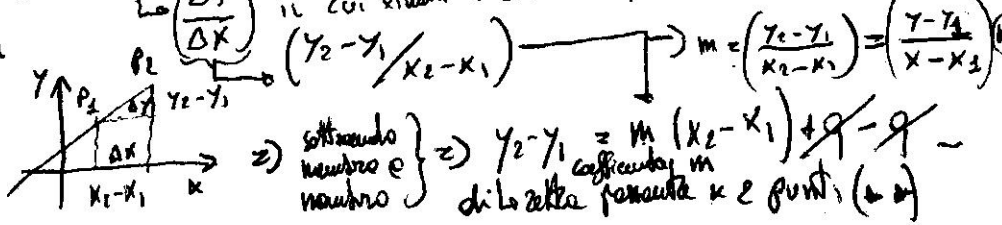 (Δy/Δx) il cui
(y₂-y₁/x₂-x₁) → m = (y₂-y₁/x₂-x₁) = (y-y₁/x-x₁)
y P₁ P₂ Δy y₂-y₁
Δx
x₂-x₁ x
=) sottraendo membro a membro } =) y₂-y₁ = m (x₂-x₁) + q - q ~
coefficiente m
di retta passante x 2 punti (**)